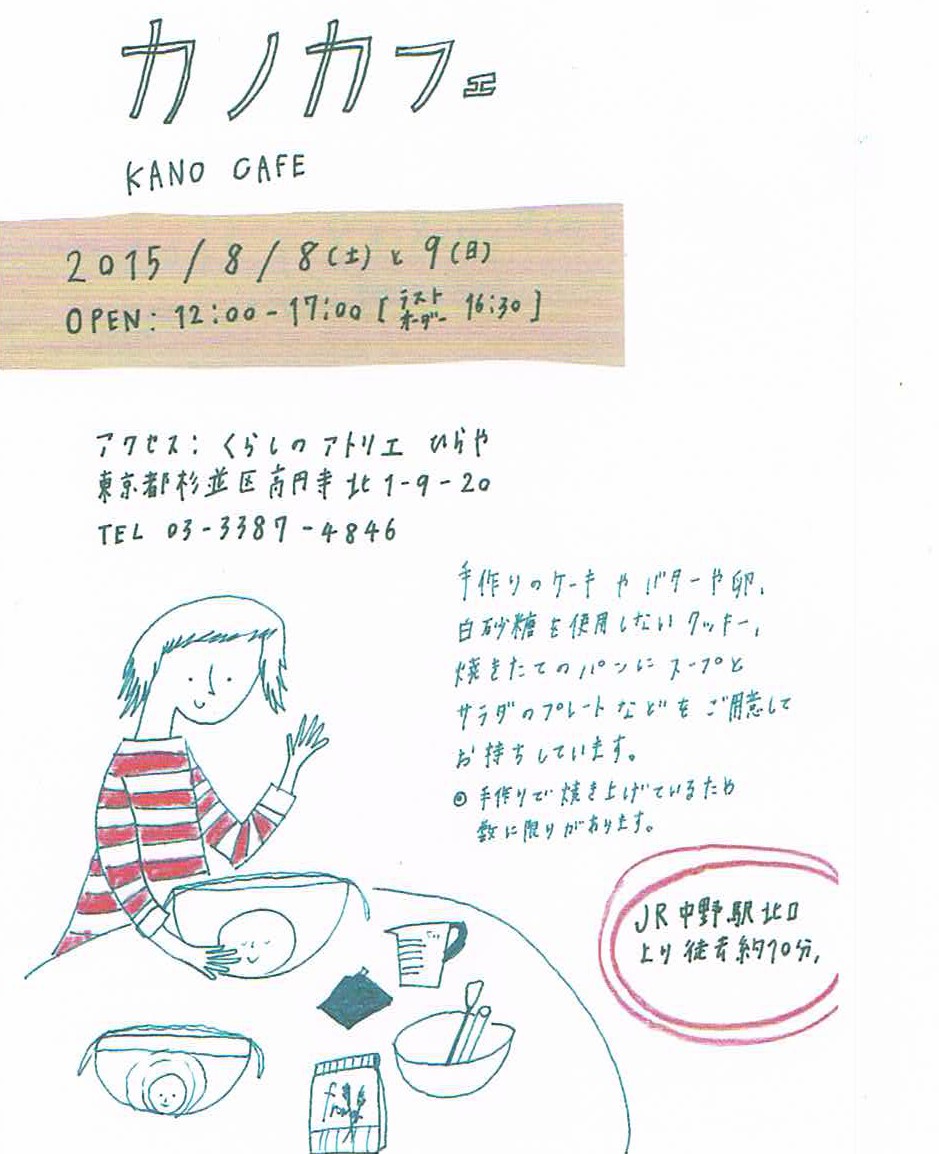 カノカフェ
KANO CAFE
2015 / 8 / 8(土)と9(日)
OPEN: 12:00-17:00 [ラストオーダー 16:30]
アクセス: くらしのアトリエ ひらや
東京都杉並区高円寺北1-9-20
TEL 03-3387-4846
手作りのケーキやバターや卵、
白砂糖を使用しないクッキー、
焼きたてのパンにスープと
サラダのプレートなどをご用意して
お持ちしています。
◎手作りで焼き上げているため
数に限りがあります。
JR中野駅北口
より徒歩約10分。